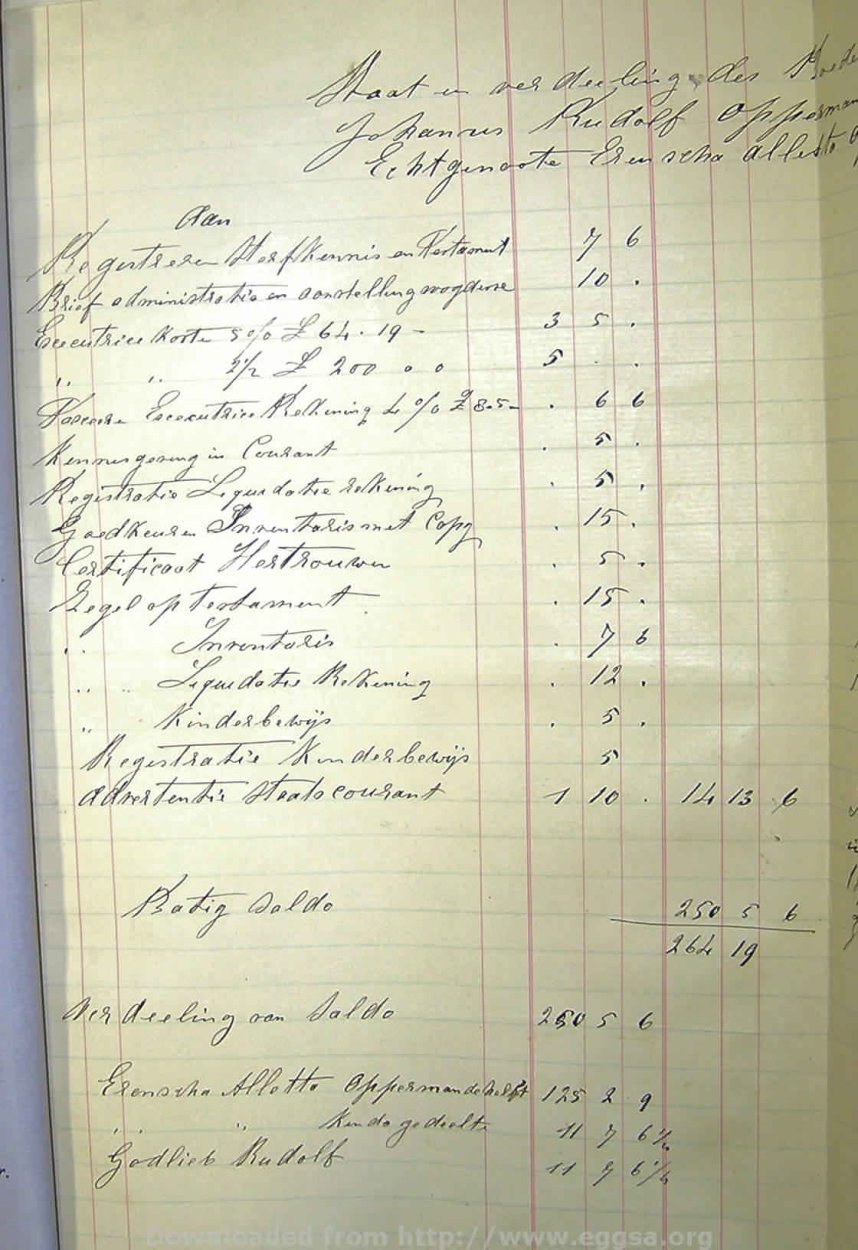 Staat en verdeeling des Boede
Johannes Rudolf Opperman
Echtgenoote Erenscha Alletta
Aan
Registreren Sterfkennis en Testament 7 6
Brief administratie en aanstelling voogdesse 10 .
Executrice Koste 5 % £ 64 . 19 - 3 5 .
" " 2 1/2 £ 200 0 0 5 . .
Executrice Rekening 4 % £ 8.5 - . 6 6
Kennisgeving in Courant . 5 .
Registratie Liquidatie rekening . 5 .
Goedkeuren Inventaris met Copy . 15 .
Certificaat Hertrouwen . 5 .
Zegel op testament . 15 .
" Inventaris . 7 6
" " Liquidatie Rekening . 12 .
" Kinderbewijs . 5 .
Registratie Kinderbewijs 5
Advertentie Staatscourant 1 10 . 14 13 6
Batig Saldo 250 5 6
264 19
Verdeeling van Saldo 250 5 6
Erenscha Alletta Opperman de helft 125 2 9
" " " Kinds gedeelte 11 7 6 1/2
Godlieb Rudolf 11 7 6 1/2
Downloaded from http://www.eggsa.org